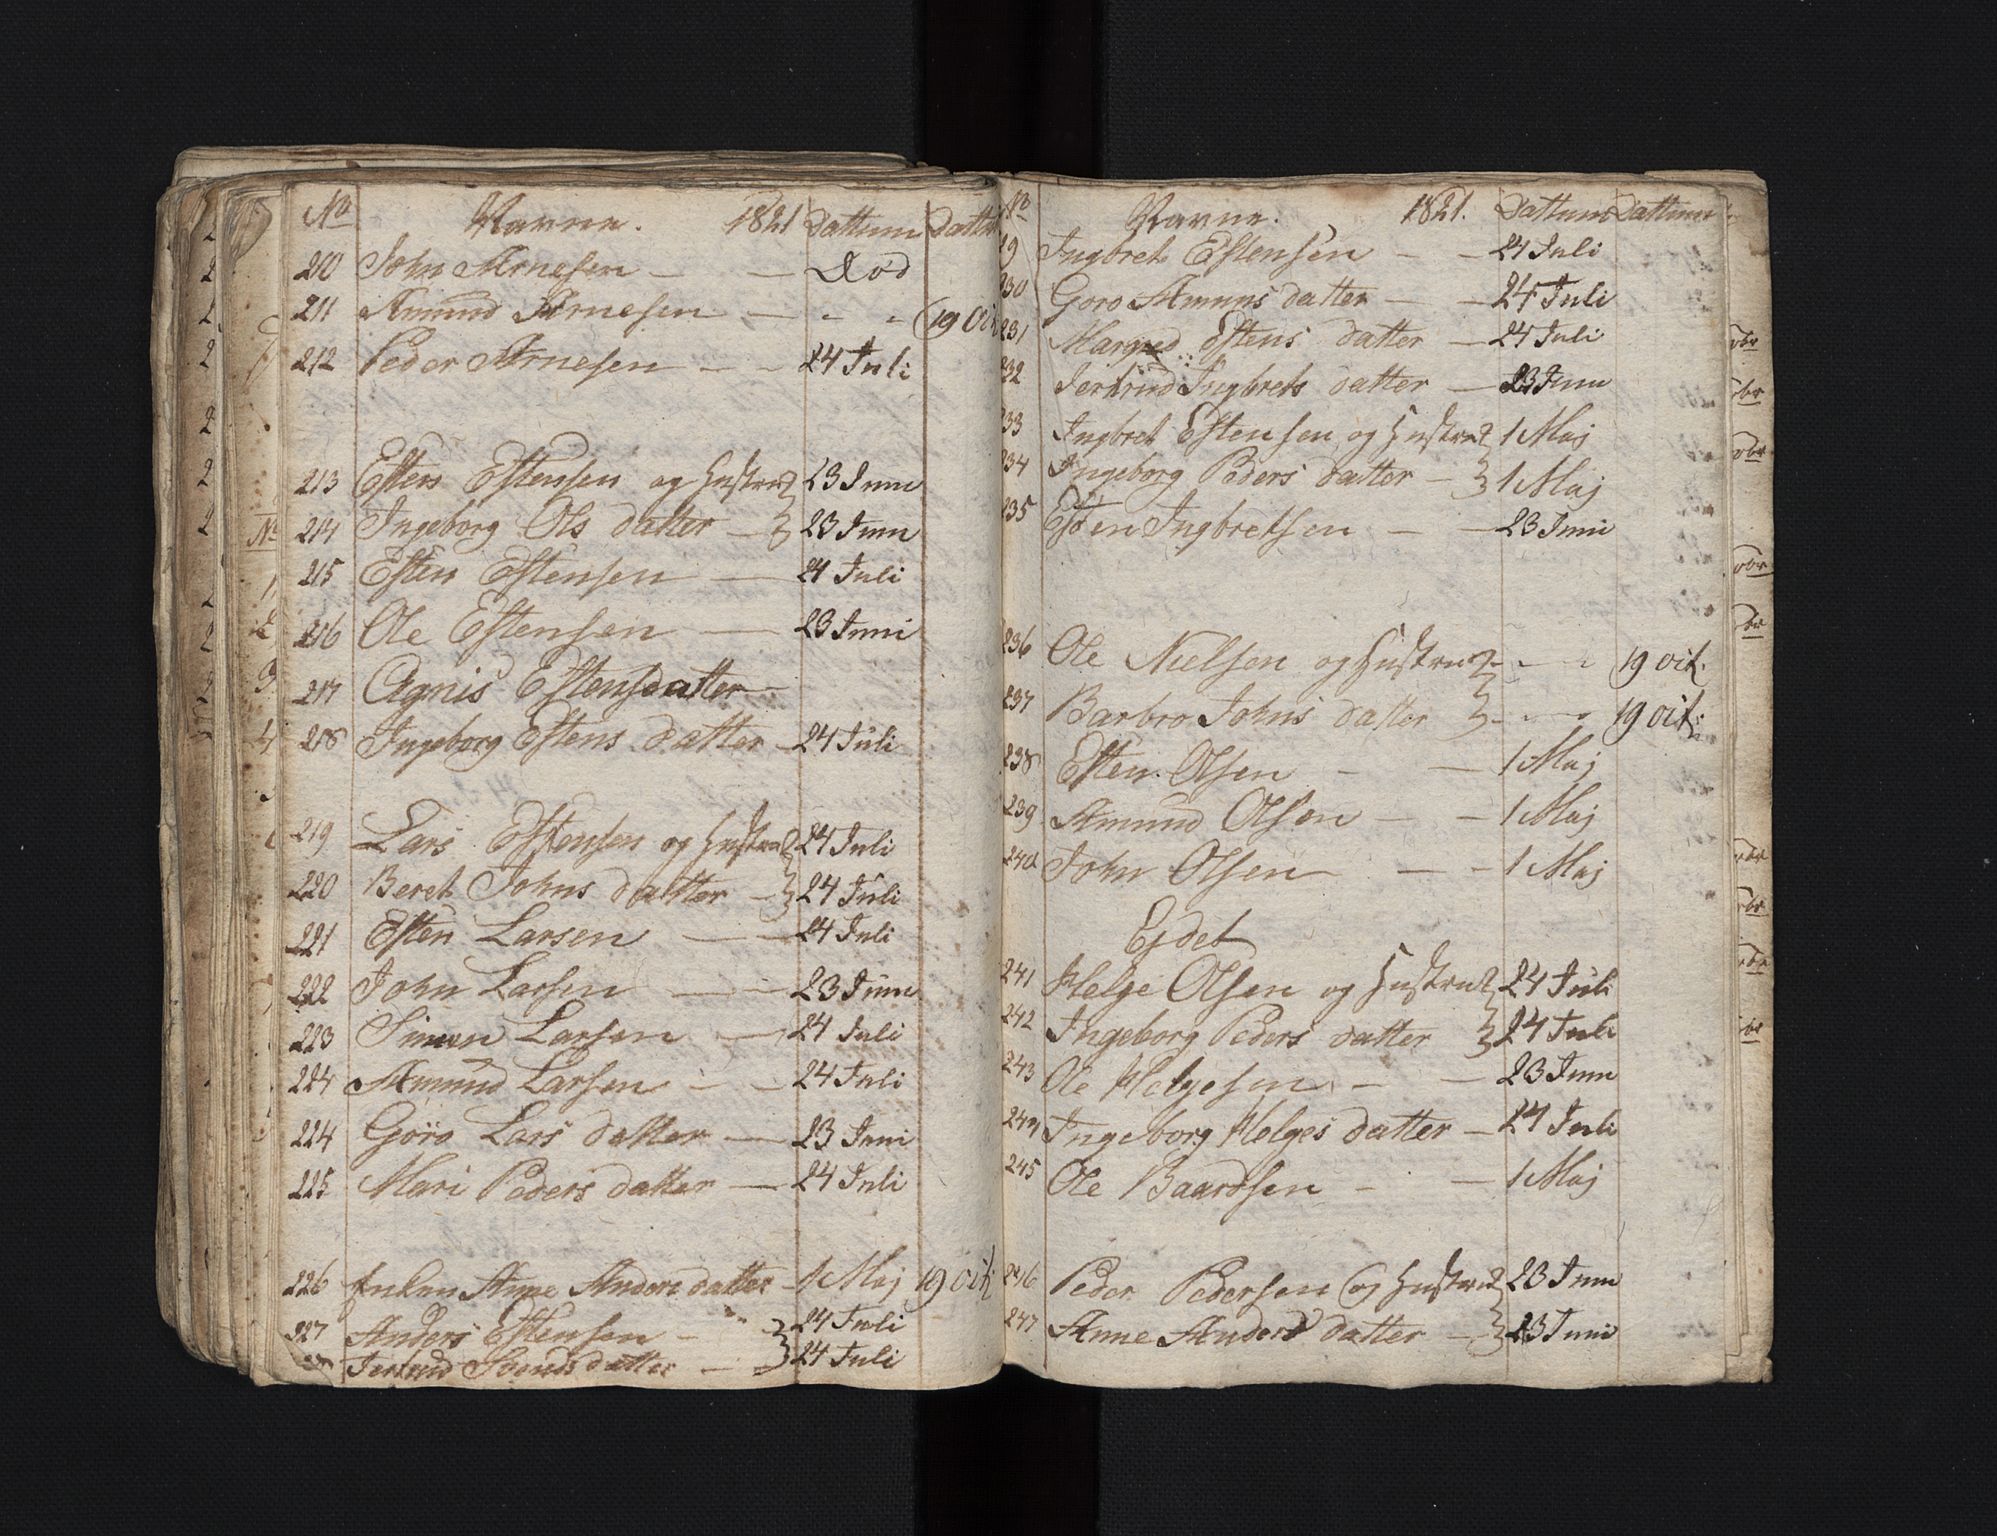 No Navne. 1821 Dattum Datt
210 John Arnesen — — Död
211 Amund Arnesen — - - 19 Oct
212 Peder Arnesen — - 24 Juli
213 Esten Estensen og Hustrue 23 Juni
214 Ingeborg Ols datter — 23 Juni
215 Esten Estensen — 24 Juli
216 Ole Estensen — 23 Juni
217 Agnis Estensdatter
218 Ingeborg Estens datter - 24 Juli
219 Lars Estensen og Hustrue 24 Juli
220 Beret Johns datter - 24 Juli
221 Esten Larsen — 24 Juli
222 John Larsen — 23 Juni
223 Simen Larsen — 24 Juli
224 Amund Larsen - - 24 Juli
224 Göro Lars datter — 23 Juni
225 Mari Peders datter — 24 Juli
226 Enken Anne Anders datter - 1 Maj 19 oct
227 Anders Estensen - 24 Juli
Jertrud Svends datter — 24 Juli
No Navne. 1821. Dattum Dattum
9 Ingbret Estensen — — 24 Juli
230 Goro Amuns datter — — 24 Juli
231 Margred Estens datter — 24 Juli
232 Jertrud Ingbrets datter — 23 Juni
233 Ingbret Estensen og Hustrue 1 Maj
234 Ingeborg Peders datter - 1 Maj
235 Esten Ingbretsen — — 23 Juni
236 Ole Nielsen og Hustrue - - - 19 oct.
237 Barbro Johns datter - - - 19 oct.
238 Esten Olsen - — 1 Maj
239 Amund Olsen — - 1 Maj
240 John Olsen — - 1 Maj
Ejdet
241 Helge Olsen og Hustrue 24 Juli
242 Ingeborg Peders datter 24 Juli
243 Ole Helgesen — — 23 Juni
244 Ingeborg Helges datter — 24 Juli
245 Ole Baardsen - — 1 Maj
246 Peder Pedersen og Hustrue 23 Juni
247 Anne Anders datter — 23 Juni